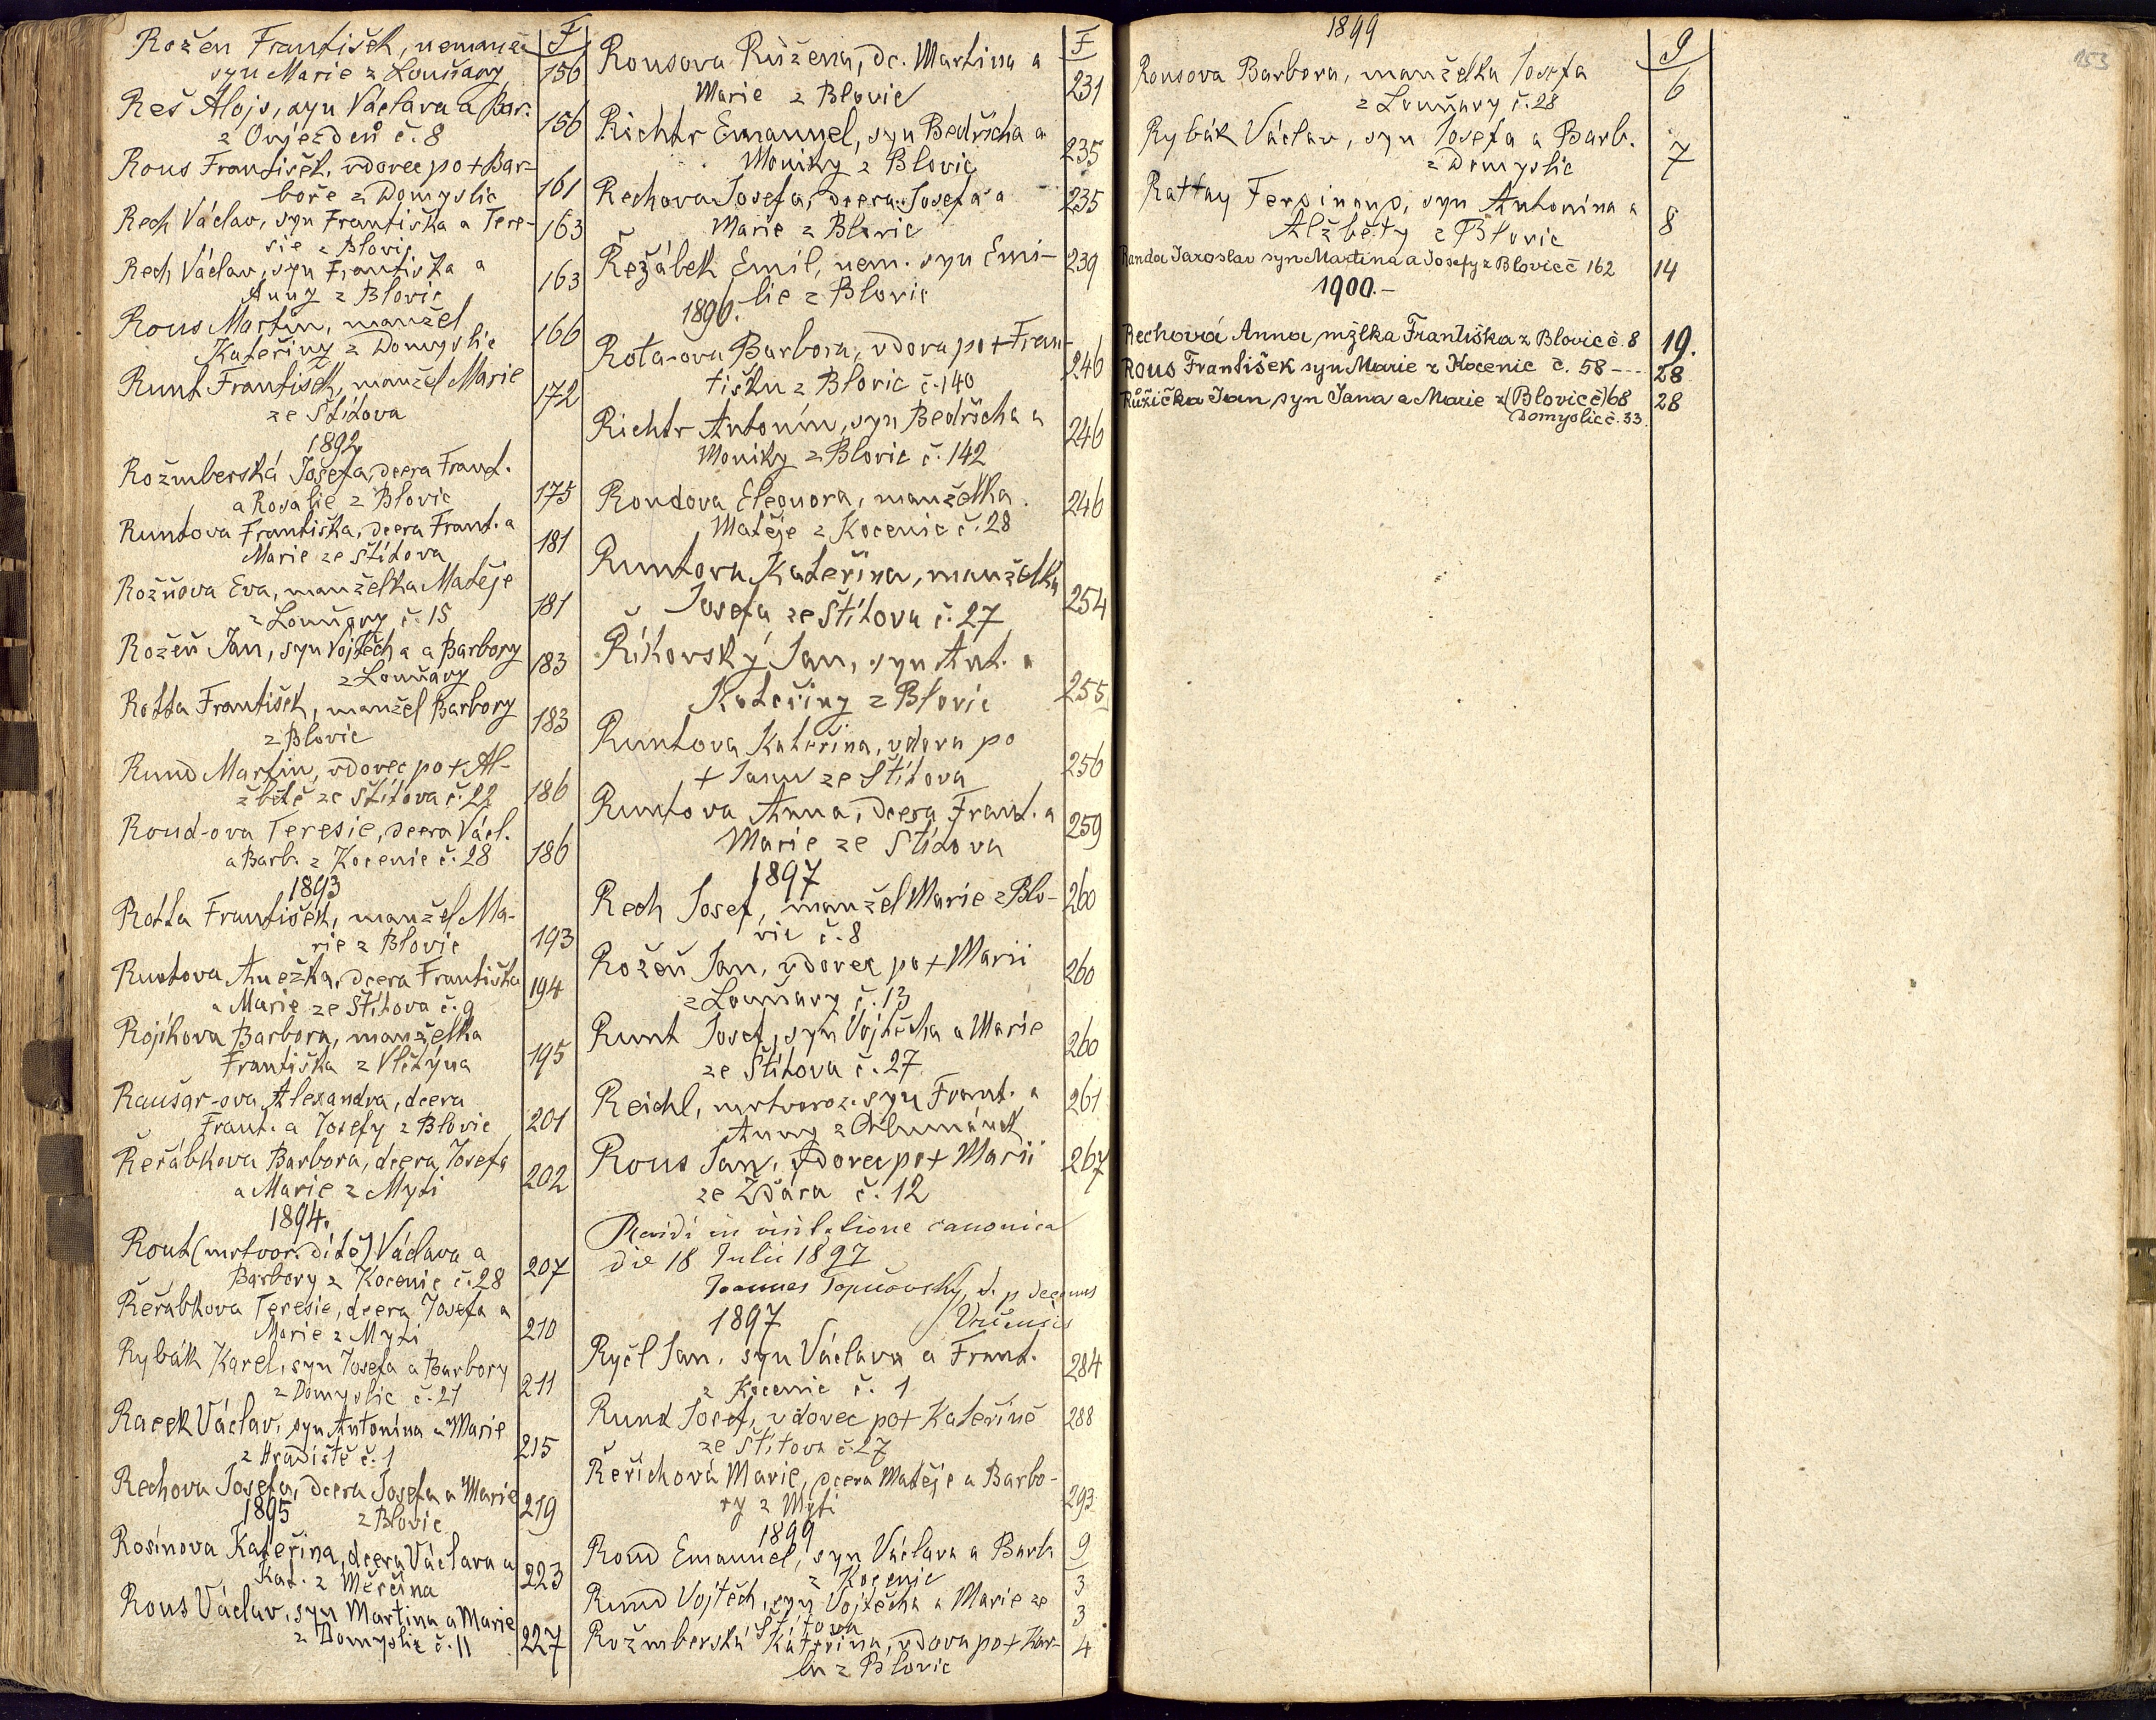 Rožen František, nemanž. F
syn Marie z Louňavy 156
Reš Alojs, syn Václava a Bar.
z Ovjezden č. 8 156
Rous František, vdovec po + Bar-
boře z Domyslic 161
Rech Václav, syn Františka a Tere-
sie z Blovic 163
Rech Václav, syn Františka a
Anny z Blovic 163
Rous Martin, manžel
Kateřiny z Domyslic 166
Runt František, manžel Marie
ze Štítova 172
1892
Rožmberská Josefa, dcera Frant.
a Rosalie z Blovic 175
Runtova Františka, dcera Frant. a
Marie ze Štítova 181
Rožňova Eva, manželka Matěje
z Louňavy č. 15 181
Rožeň Jan, syn Vojtěcha a Barbory
z Louňavy 183
Rotta František, manžel Barbory
z Blovic 183
Rund Martin, vdovec po + Al-
žbětě ze Štítova č. 22 186
Roud-ova Teresie, dcera Václ.
a Barb. z Kocenic č. 28 186
1893
Rotta František, manžel Ma-
rie z Blovic 193
Runtova Anežka, dcera Františka
a Marie ze Štítova č. 9 194
Rojíkova Barbora, manželka
Františka z Vlčtýna 195
Raušar-ova Alexandra, dcera
Frant. a Josefy z Blovic 201
Řeřábkova Barbora, dcera Josefa
a Marie z Myti 202
1894.
Rout (mrtvor. dítě) Václava a
Barbory z Kocenic č. 28 207
Řeřábkova Teresie, dcera Josefa a
Marie z Myti 210
Rybák Karel, syn Josefa a Barbory
z Domyslic č. 21 211
Racek Václav, syn Antonína a Marie
z Hradiště č. 1 215
Rechova Josefa, dcera Josefa a Marie
1895 z Blovic 219
Rosínova Kateřina, dcera Václava a
Kat. z Měrčína 223
Rous Václav, syn Martina a Marie
z Domyslic č. 11 227
F
Rousova Růžena, dc. Martina a
Marie z Blovic 231
Richtr Emanuel, syn Bedřicha a
Moniky z Blovic 235
Rechova Josefa, dcera Josefa a
Marie z Blovic 235
Řežábek Emil, nem. syn Emi- 239
lie z Blovic
1896.
Rota-ova Barbora, vdova po + Fran-
tišku z Blovic č. 140 246
Richtr Antonín, syn Bedřicha a
Moniky z Blovic č. 142 246
Roudova Eleonora, manželka
Matěje z Kocenic č. 28 246
Runtova Kateřina, manželka
Josefa ze Štítova č. 27 254
Říkovský Jan, syn Ant. a
Kateřiny z Blovic 255
Runtova Kateřina, vdova po
+ Janu ze Štítova 256
Runtova Anna, dcera Frant. a
Marie ze Štítova 259
1897
Rech Josef, manžel Marie z Blo- 260
vic č. 8
Rožeň Jan, vdovec po + Marii
z Louňavy č. 13 260
Runt Josef, syn Vojtěcha a Marie
ze Štítova č. 27 260
Reichl, mrtvoroz. syn Frant. a 261
Anny z Chlumánek
Rous Jan, vdovec po + Marii 267
ze Žďára č. 12
Revidi in visitatione canonica
die 18 Julii 1897
Joannes
1897
Ryčl Jan, syn Václava a Frant.
z Kocenic č. 1 284
Rund Josef, vdovec po + Kateřině 288
ze Štítova č. 27
Řeřichová Marie, dcera Matěje a Barbo-
ry z Myti 293
1899
Roud Emanuel, syn Václava a Barb. 9
z Kocenic 3
Rund Vojtěch, syn Vojtěcha a Marie ze
Štítova 3
Rožmberská Kateřina, vdova po + Kar- 4
lu z Blovic
1899
9
153
Rousova Barbora, manželka Josefa
z Louňavy č. 28 6
Rybák Václav, syn Josefa a Barb.
z Domyslic 7
Rattay Ferdinand, syn Antonína a
Alžběty z Blovic 8
Randa Jaroslav syn Martina a Josefy z Blovic č 162 14
1900.-
Rechová Anna mžlka Františka z Blovic č. 8 19.
Rous František syn Marie z Kocenic č. 58 --- 28
Růžička Jan syn Jana a Marie z (Blovic č) 68 28
Domyslic č. 33.